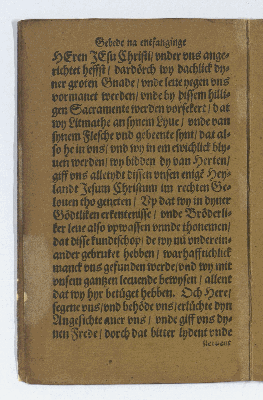 Gebede na entfanginge
HEren JEsu Christi/ vnder vns ange-
richtet heffst/ dardörch wy dachlick dy-
ner groten Gnade/ vnde leue yegen vns
vormanet werden/ vnde by dissem hilli-
gen Sacramente werden vorsekert/ dat
wy Litmathe an synem Lyue/ vnde van
synem Flesche vnd gebeente synt/ dat al-
so he in vns/ vnd wy in em ewichlick bly-
uen werden/ wy bidden dy van Herten/
giff vns alletydt dissen vnsen enigē Hey-
landt Jesum Christum im rechten Ge-
louen tho geneten/ Vp dat wy in dyner
Gödtliken erkentenisse/ vnde Bröderli-
ker leue also vpwassen vnde thonemen/
dat disse kundtschop/ de wy nu vnderein-
ander gebruket hebben/ warhafftichlick
manck vns gefunden werde/ vnd wy mit
vnsem gantzen leeuende bewysen/ allent
dat wy hyr betüget hebben. Och Here/
segene vns/ vnd behöde vns/ erlüchte dyn
Angesichte auer vns/ vnde giff vns dy-
nen Frede/ dorch dat bitter lydent vnde